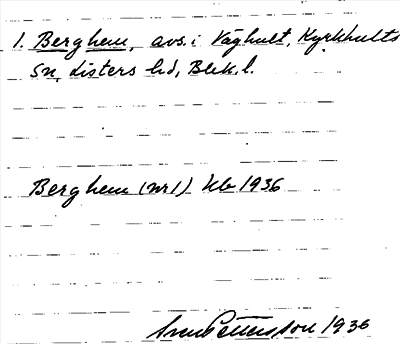 1. Berghem, avs. i Våghult, Kyrkhults
sn, Listers hd, Blek. l.
Berghem (nr 1) Kb 1936
Sven Pettersson 1936